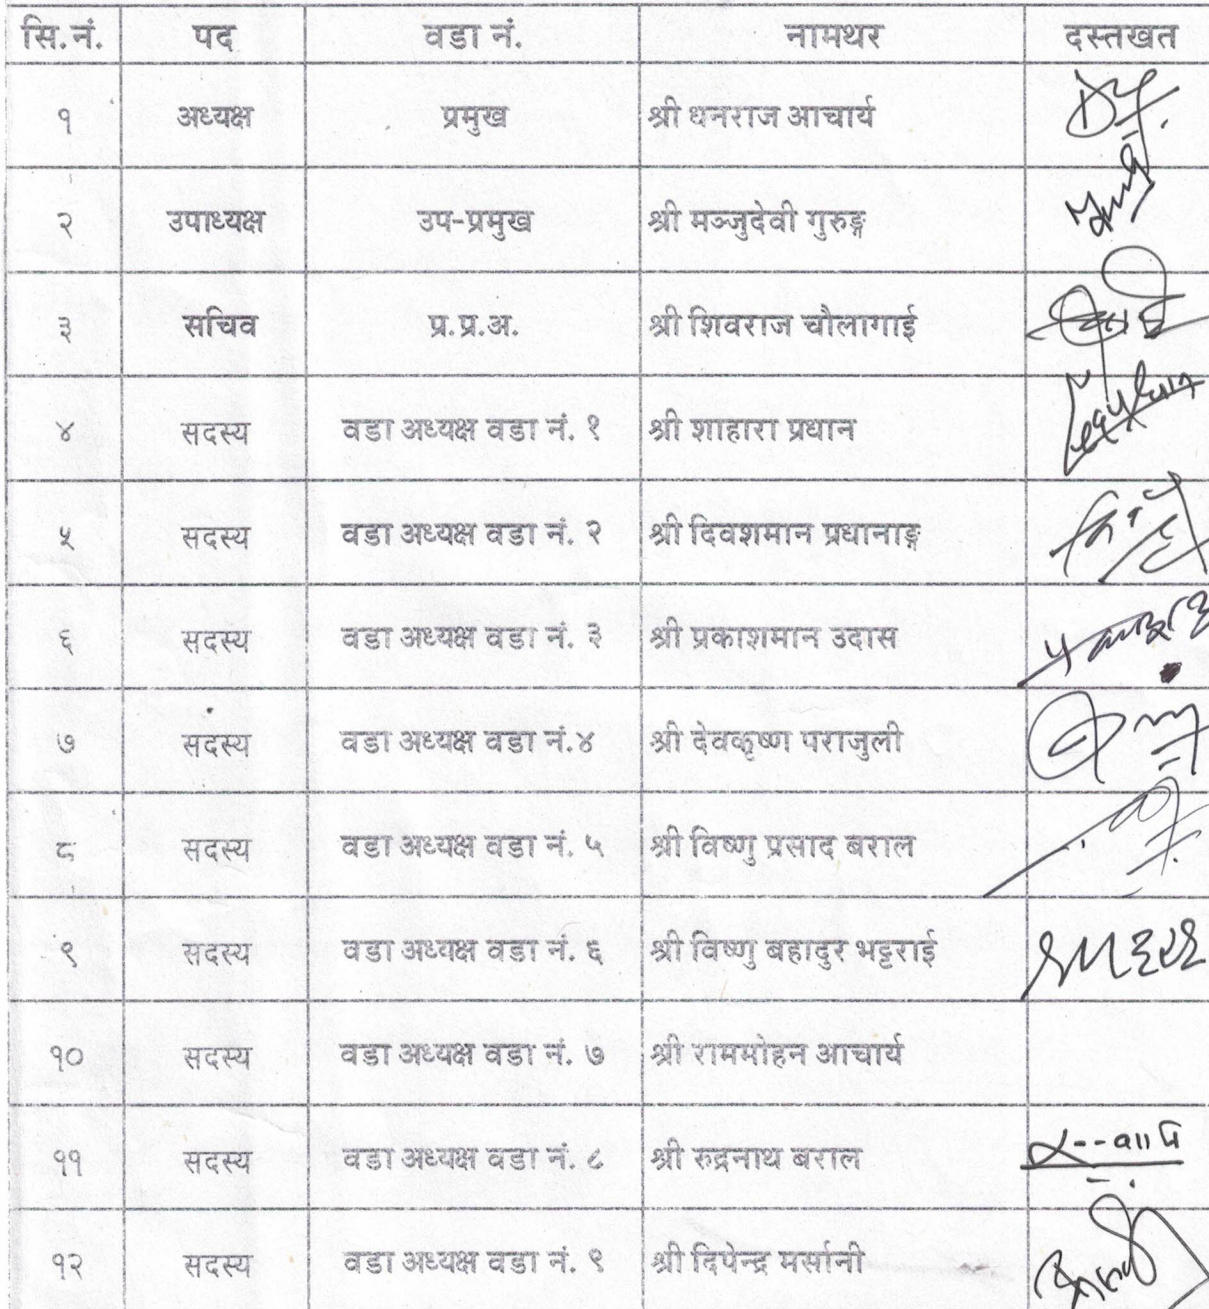 सि.नं. पद वडा नं. नामथर दस्तखत
१ अध्यक्ष प्रमुख श्री धनराज आचार्य
२ उपाध्यक्ष उप-प्रमुख श्री मञ्जुदेवी गुरुङ्ग
३ सचिव प्र.प्र.अ. श्री शिवराज चौलागाई
४ सदस्य वडा अध्यक्ष वडा नं. १ श्री शाहारा प्रधान
५ सदस्य वडा अध्यक्ष वडा नं. २ श्री दिवशमान प्रधानाङ्ग
६ सदस्य वडा अध्यक्ष वडा नं. ३ श्री प्रकाशमान उदास
७ सदस्य वडा अध्यक्ष वडा नं.४ श्री देवकृष्ण पराजुली
८ सदस्य वडा अध्यक्ष वडा नं. ५ श्री विष्णु प्रसाद बराल
९ सदस्य वडा अध्यक्ष वडा नं. ६ श्री विष्णु बहादुर भट्टराई
१० सदस्य वडा अध्यक्ष वडा नं. ७ श्री राममोहन आचार्य
११ सदस्य वडा अध्यक्ष वडा नं. ८ श्री रुद्रनाथ बराल
१२ सदस्य वडा अध्यक्ष वडा नं. ९ श्री दिपेन्द्र मर्सानी